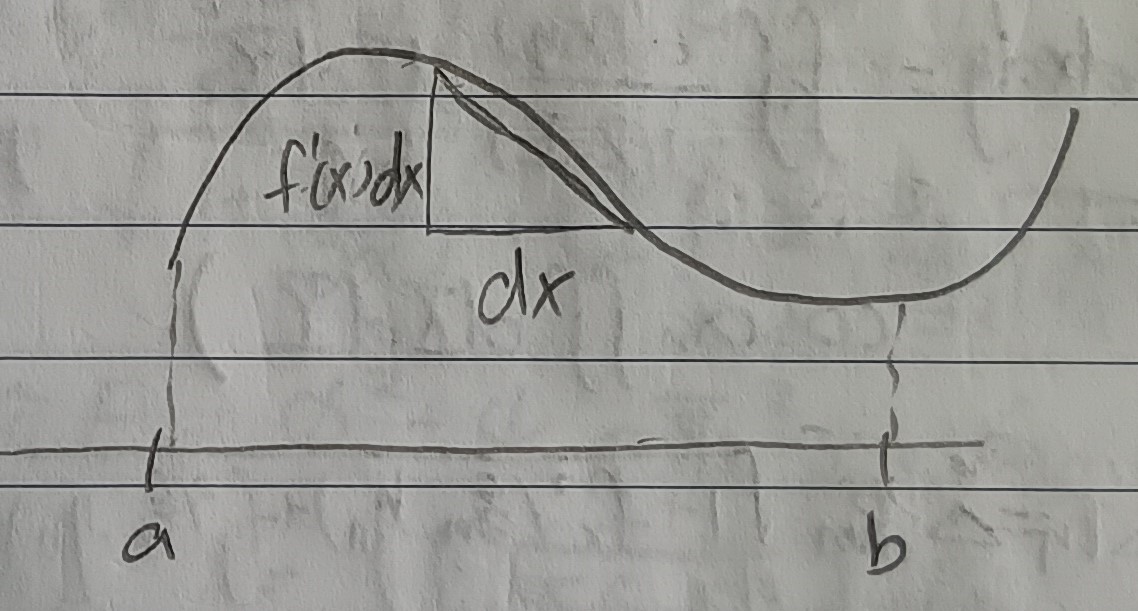 f'(x)dx
dx
a
b